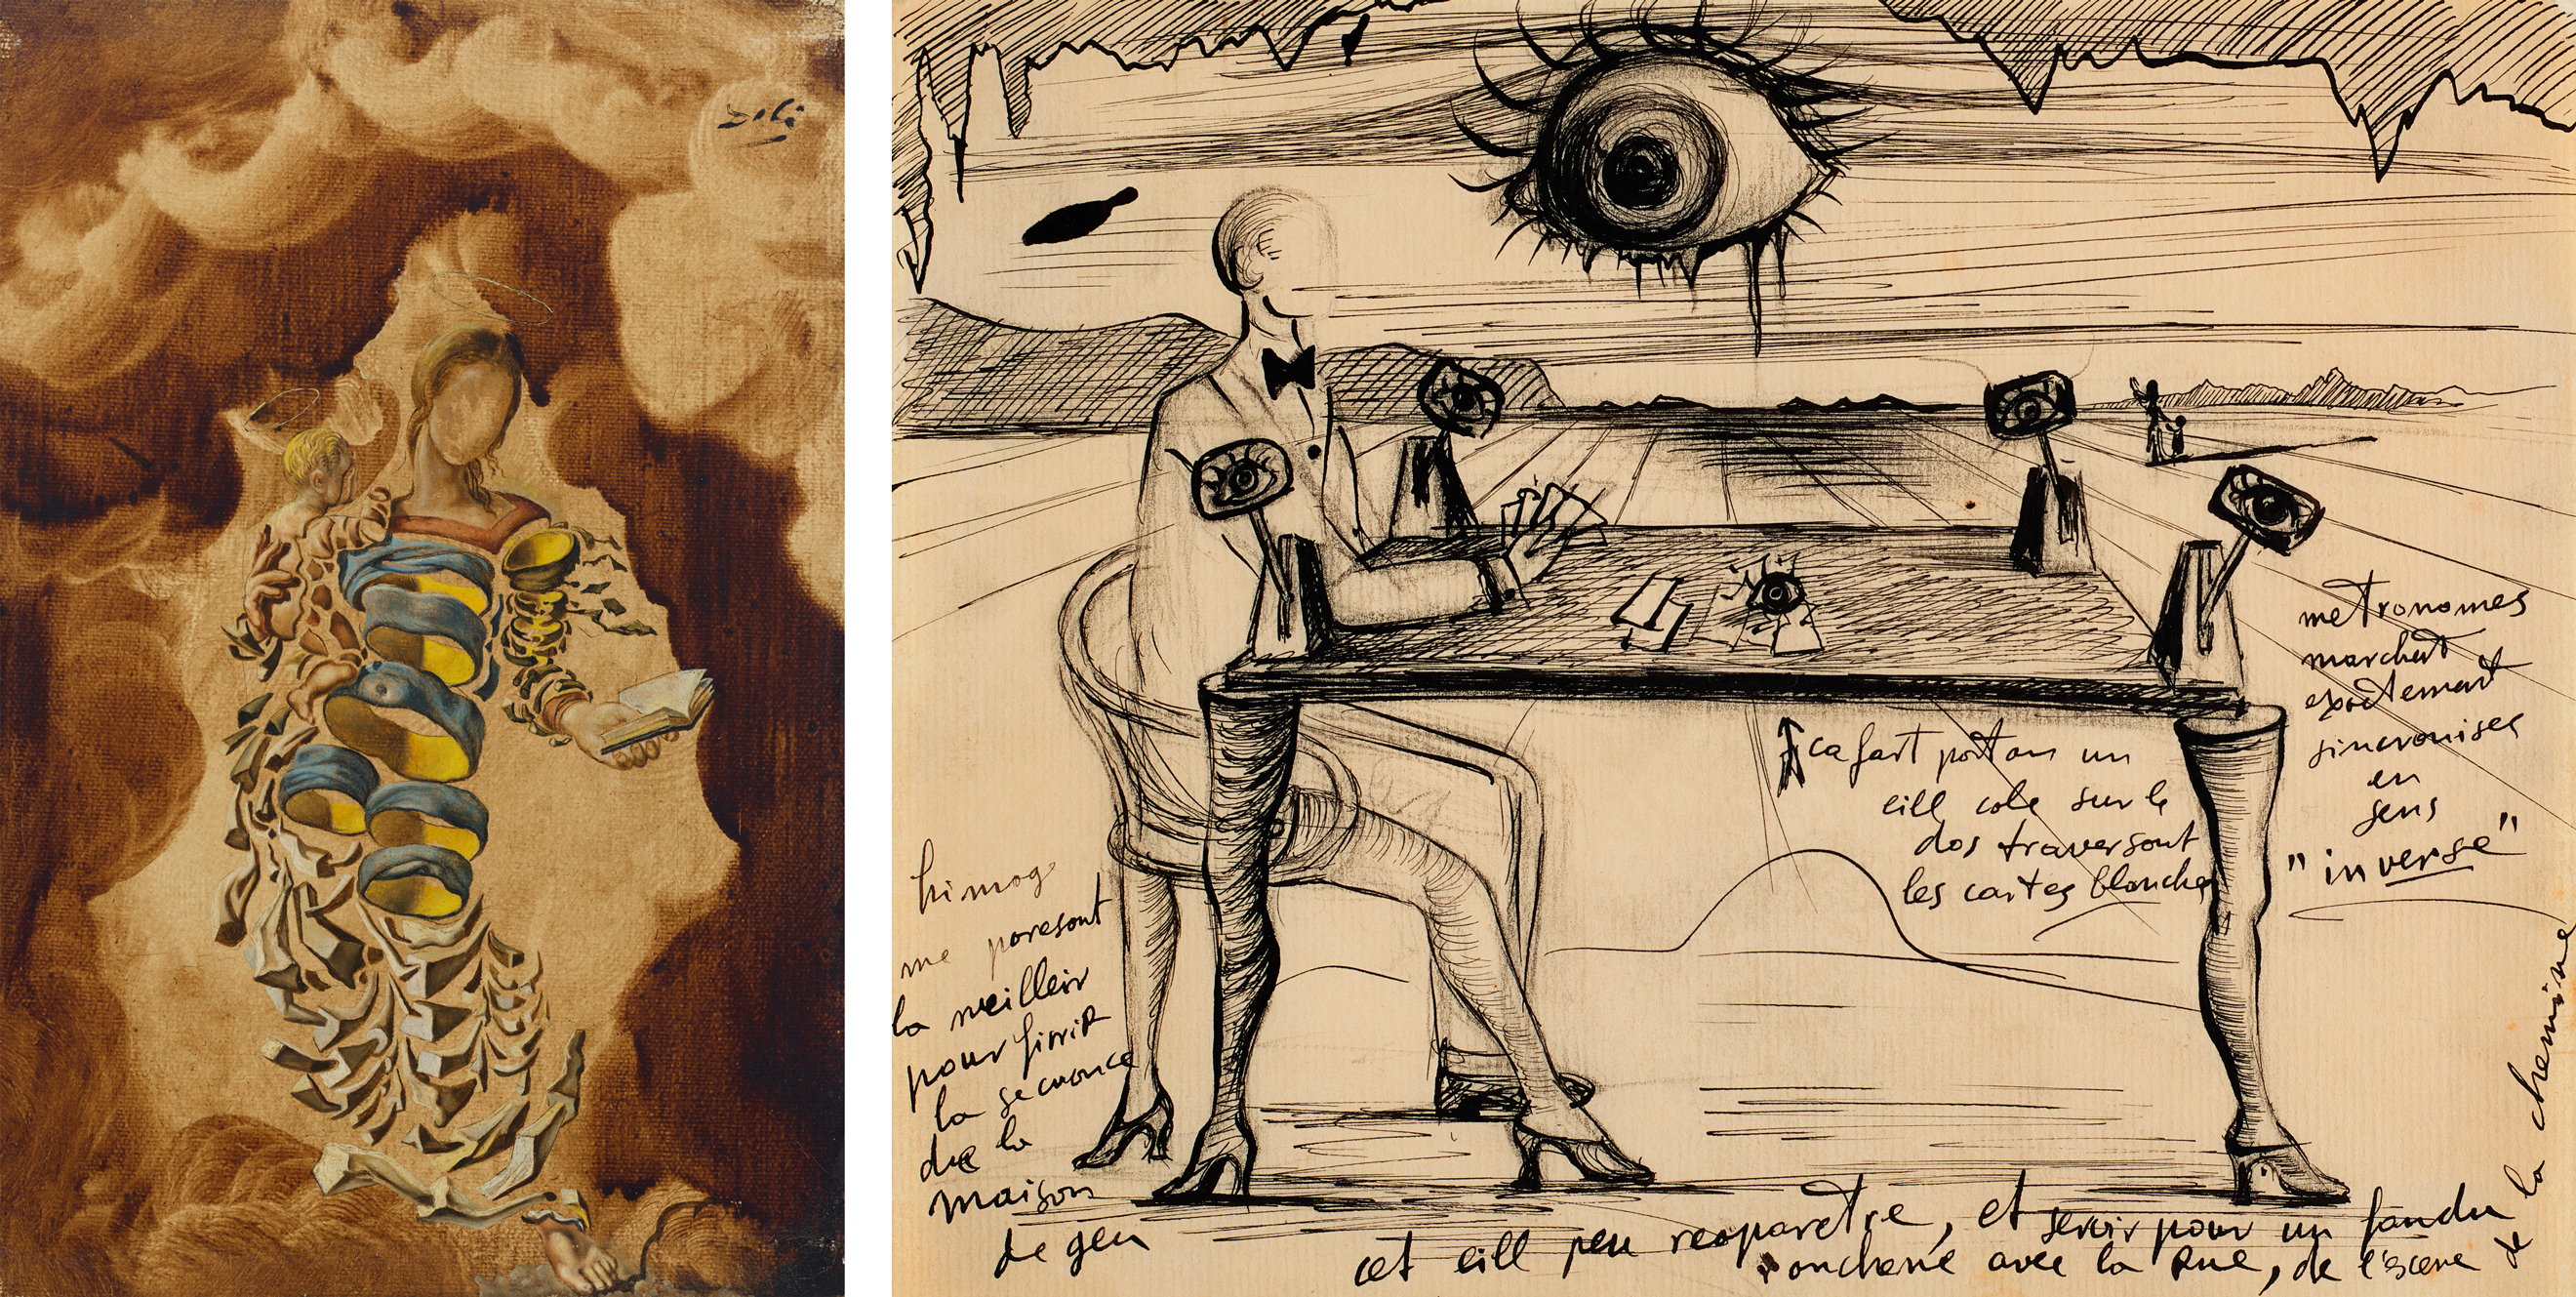 Dalí
metronomes
marchant
exactemant
sincronises
en
sens
"inverse"
cafart portan un
eill cole sur le
dos traversont
les cartes blanches
himog
me paresont
la meilleir
pour finir
la secuonce
de la
maison
de geu
cet eill peu reaparetre, et servir pour un fandu
onchene avec la Rue, de l'escene
de la chemine